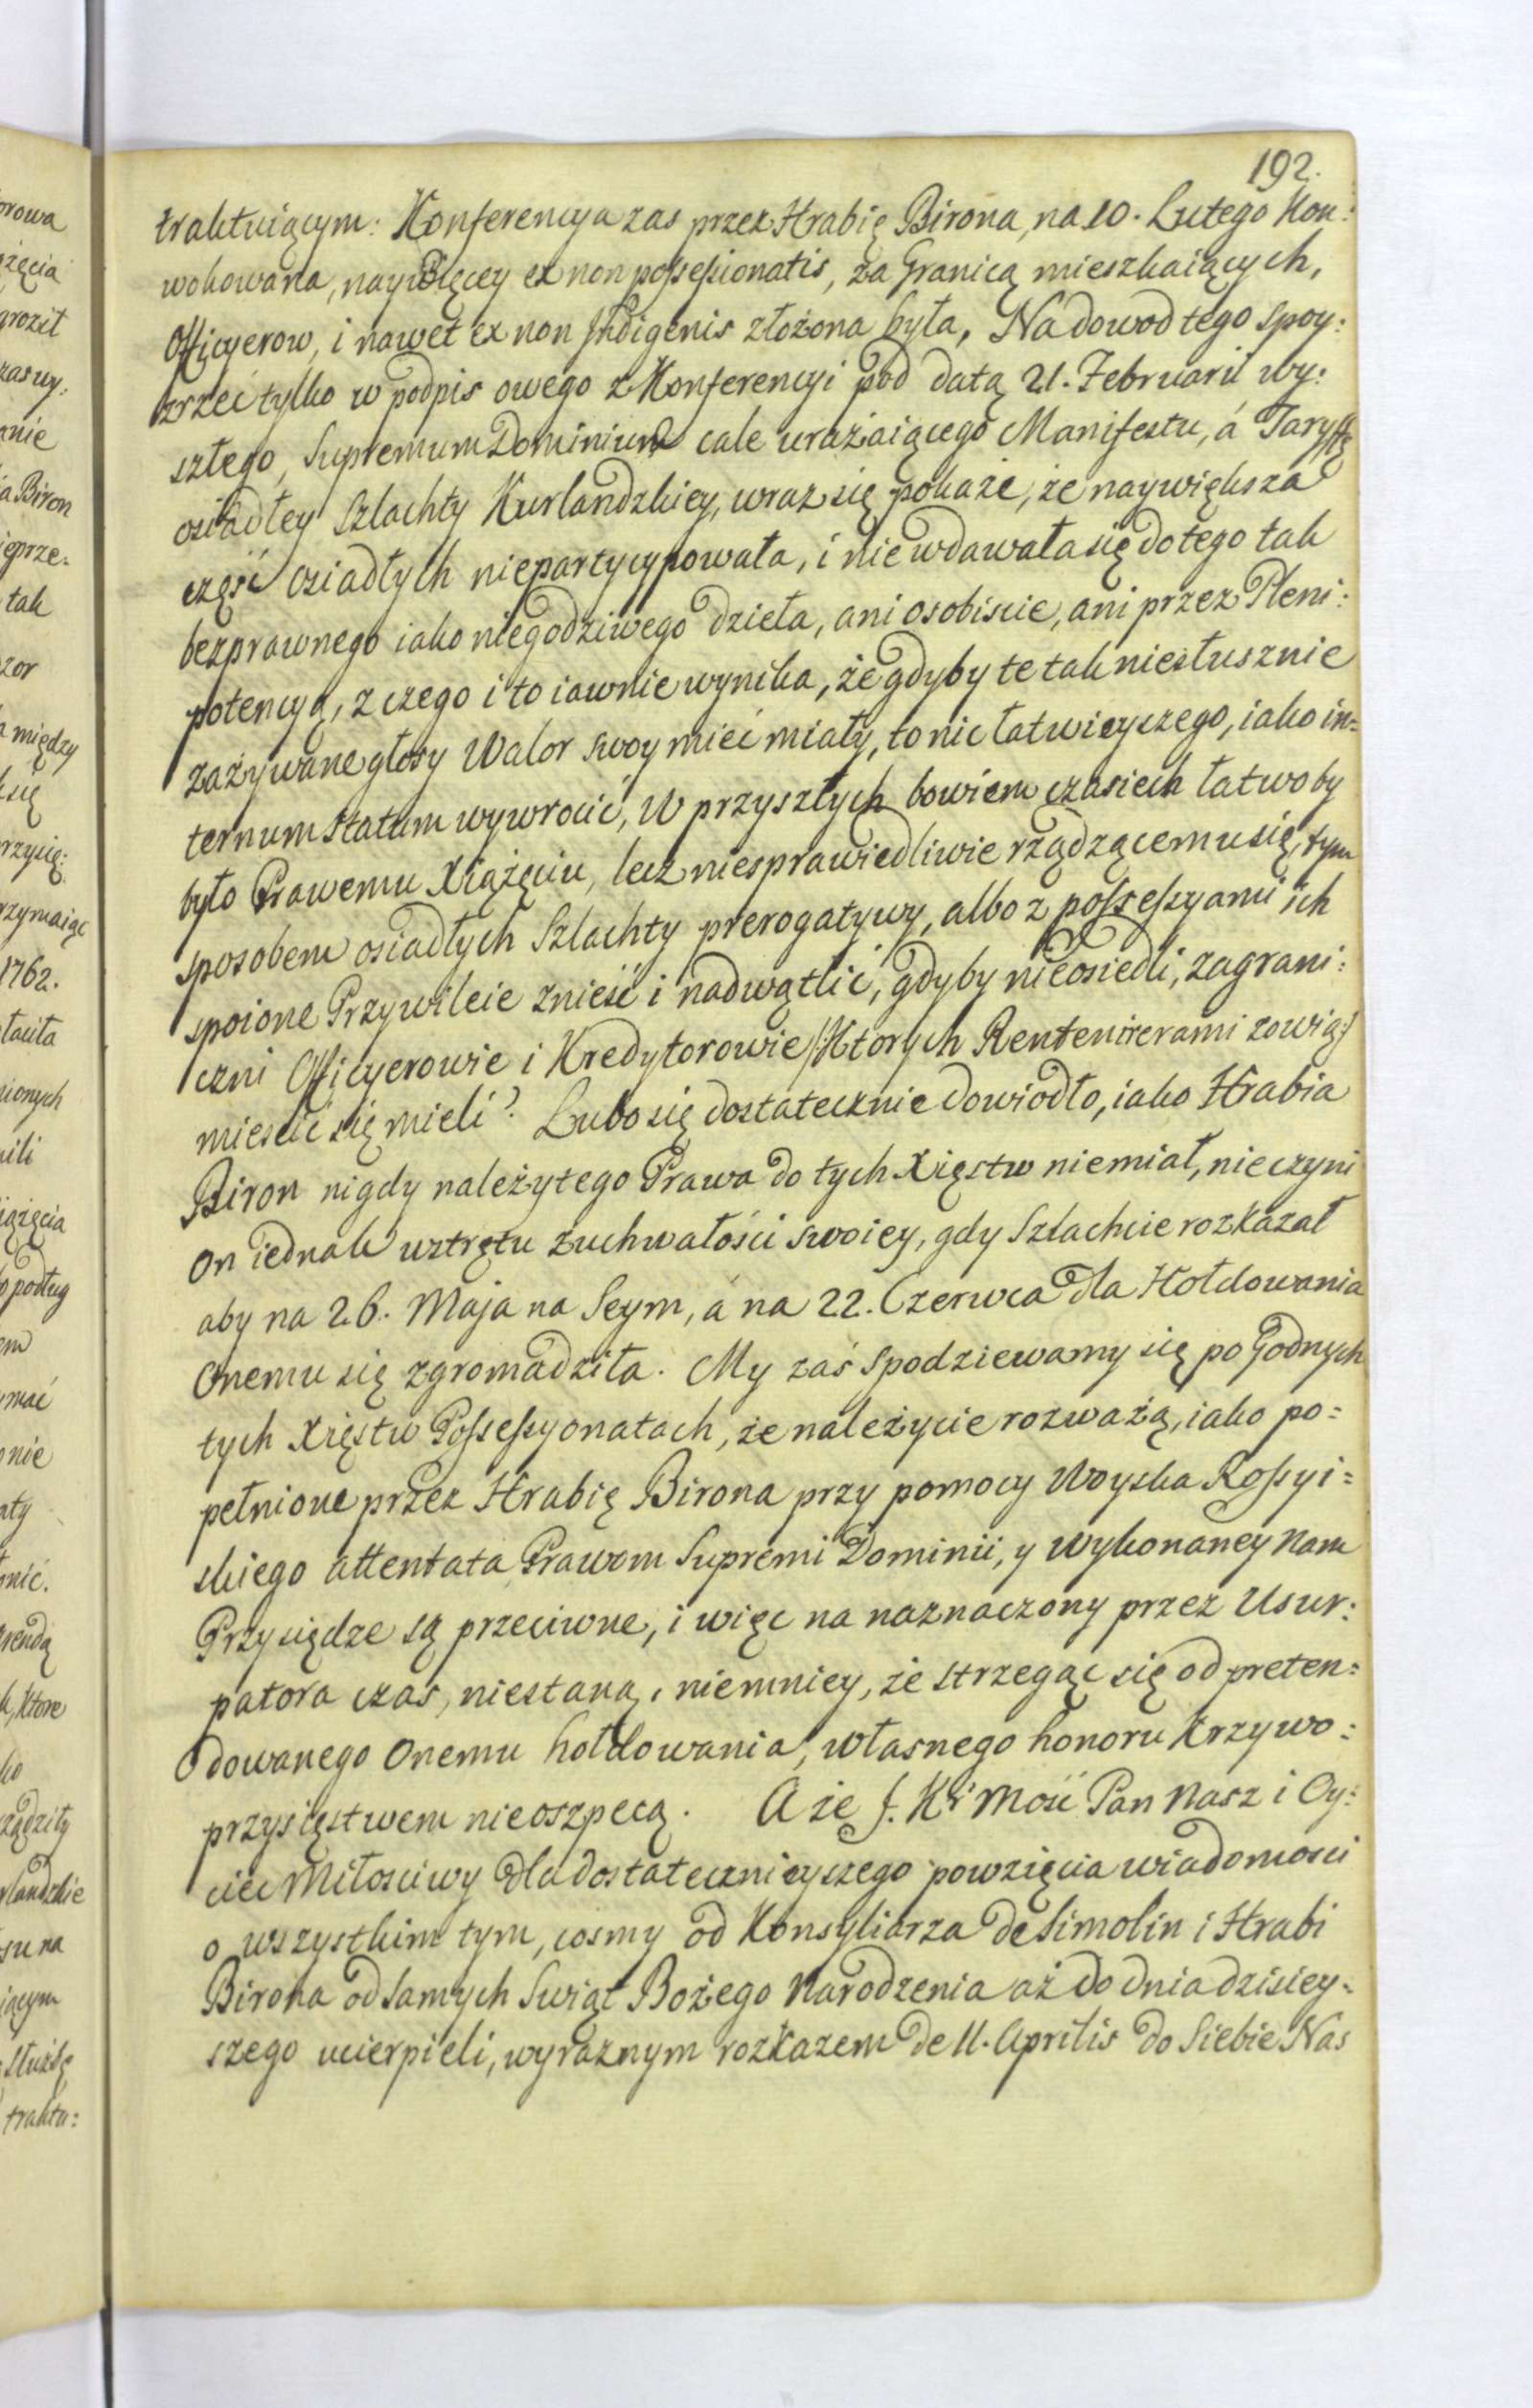 192.
traktuiącym: Konferencya zas przez Hrabię Birona, na 10. Lutego Kon:
wokowana, naywięcey ex non possessionatis, za Granicą mieszkaiących,
Officyerow, i nawet ex non Indigenis złożona była, Na dowod tego spoy:
zrzeć tylko w podpis owego z Konferencyi pod datą 21. Februarii wy:
szłego, Supremum Dominium cale urażaiącego Manifestu, á Taryffę
osiadłey Szlachty Kurlandzkiey, wraz się pokaże, że naywiększa
część osiadłych niepartycypowała, i nie wdawała się do tego tak
bezprawnego iako niegodziwego dzieła, ani osobiscie, ani przez Pleni:
potencyą, z czego i to iawnie wynika, że gdyby te tak niesłusznie
zażywane głosy Walor swoy mieć miały, to nic łatwieyczego, iako in=
ternum statum wywrocić, W przyszłych bowiem czasiech łatwoby
było Prawemu Xiążęciu, lecz niesprawiedliwie rządzącemu się, tym
sposobem osiadłych Szlachty prerogatywy, albo z possessyami ich
spoione Przywileie znieść i nadwątlić, gdyby nieosiedli, zagrani:
czni Officyerowie i Kredytorowie /:Ktorych Rentenirerami zowią:/
miescić się mieli? Lubo się dostatecznie dowiodło, iako Hrabia
Biron nigdy należytego Prawa do tych Xięstw niemiał, nie czyni
on iednak wztrętu zuchwałości swoiey, gdy Szlachcie rozkazał
aby na 26. Maja na Seym, á na 22. Czerwca dla Hołdowania
Onemu się zgromadziła. My zaś spodziewamy się po Godnych
tych Xięstw Possessyonatach, że należycie rozważą, iako po=
pełnione przez Hrabię Birona przy pomocy Woyska Rossyi=
skiego attentata Prawom Supremi Dominii, y wykonaney Nam
Przysiędze są przeciwne, i więc na naznaczony przez Usur:
patora czas, niestaną, niemniey, że strzegąc się od preten=
dowanego Onemu hołdowania, własnego honoru krzywo:
przysięstwem nieoszpecą. A że J. Kr Mość Pan Nasz i Oy:
ciec Miłosciwy dla dostatecznieyszego powzięcia wiadomosci
o wszystkim tym, cosmy od Konsyliarza de Simolin i Hrabi
Birona od samych Swiąt Bożego Narodzenia aż do dnia dzisiey=
szego ucierpieli, wyraznym rozkazem de 11. Aprilis do Siebie Nas